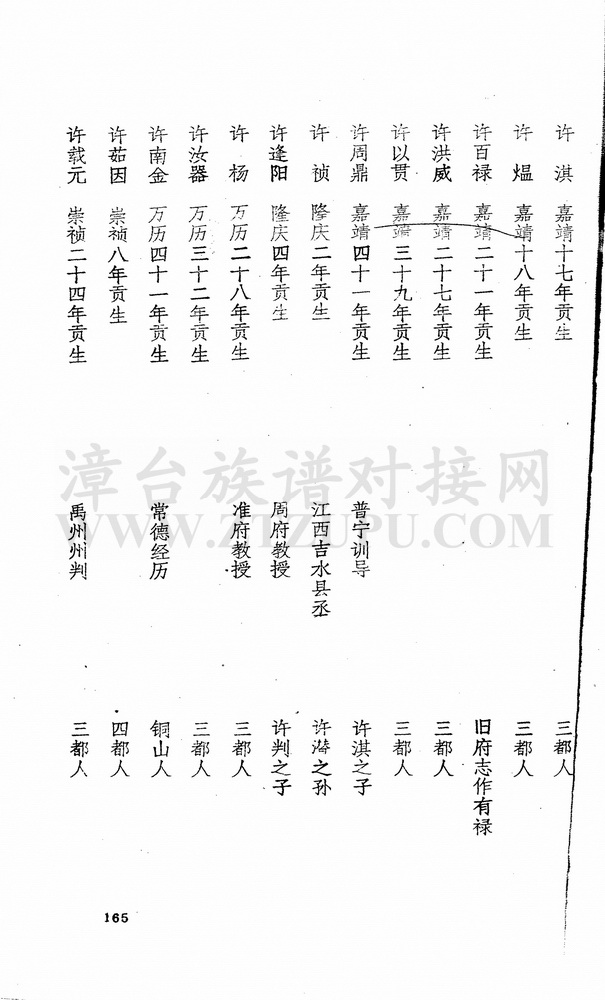 许淇 嘉靖十七年贡生 三都人
许煴 嘉靖十八年贡生 三都人
许百禄 嘉靖二十一年贡生 旧府志作有禄
许洪威 嘉靖二十七年贡生 三都人
许以贯 嘉靖三十九年贡生 三都人
许周鼎 嘉靖四十一年贡生 普宁训导 许淇之子
许祯 隆庆二年贡生 江西吉水县丞 许潜之孙
许逢阳 隆庆四年贡生 周府教授 许判之子
许杨 万历二十八年贡生 准府教授 三都人
许汝器 万历三十二年贡生 三都人
许南金 万历四十一年贡生 常德经历 铜山人
许茹因 崇祯八年贡生 四都人
许载元 崇祯二十四年贡生 禹州州判 三都人
165
漳台族谱对接网
WWW.ZTZUPU.COM